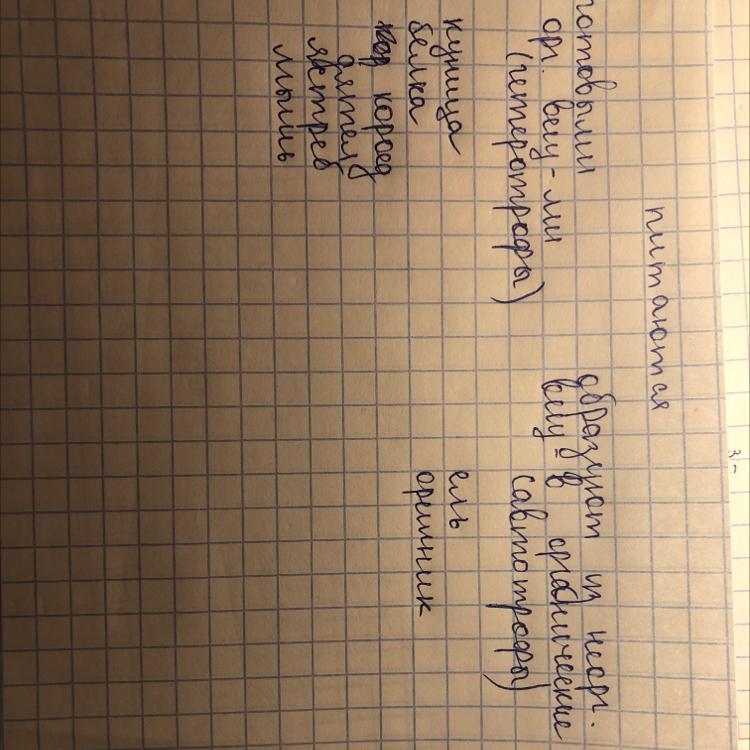 питаются
готовыми
орг. вещ-ми
(гетеротрофы)
куница
белка
короед
дятел
ястреб
мышь
образуют из неорг.
вещ-в органические
(автотрофы)
ель
орешник